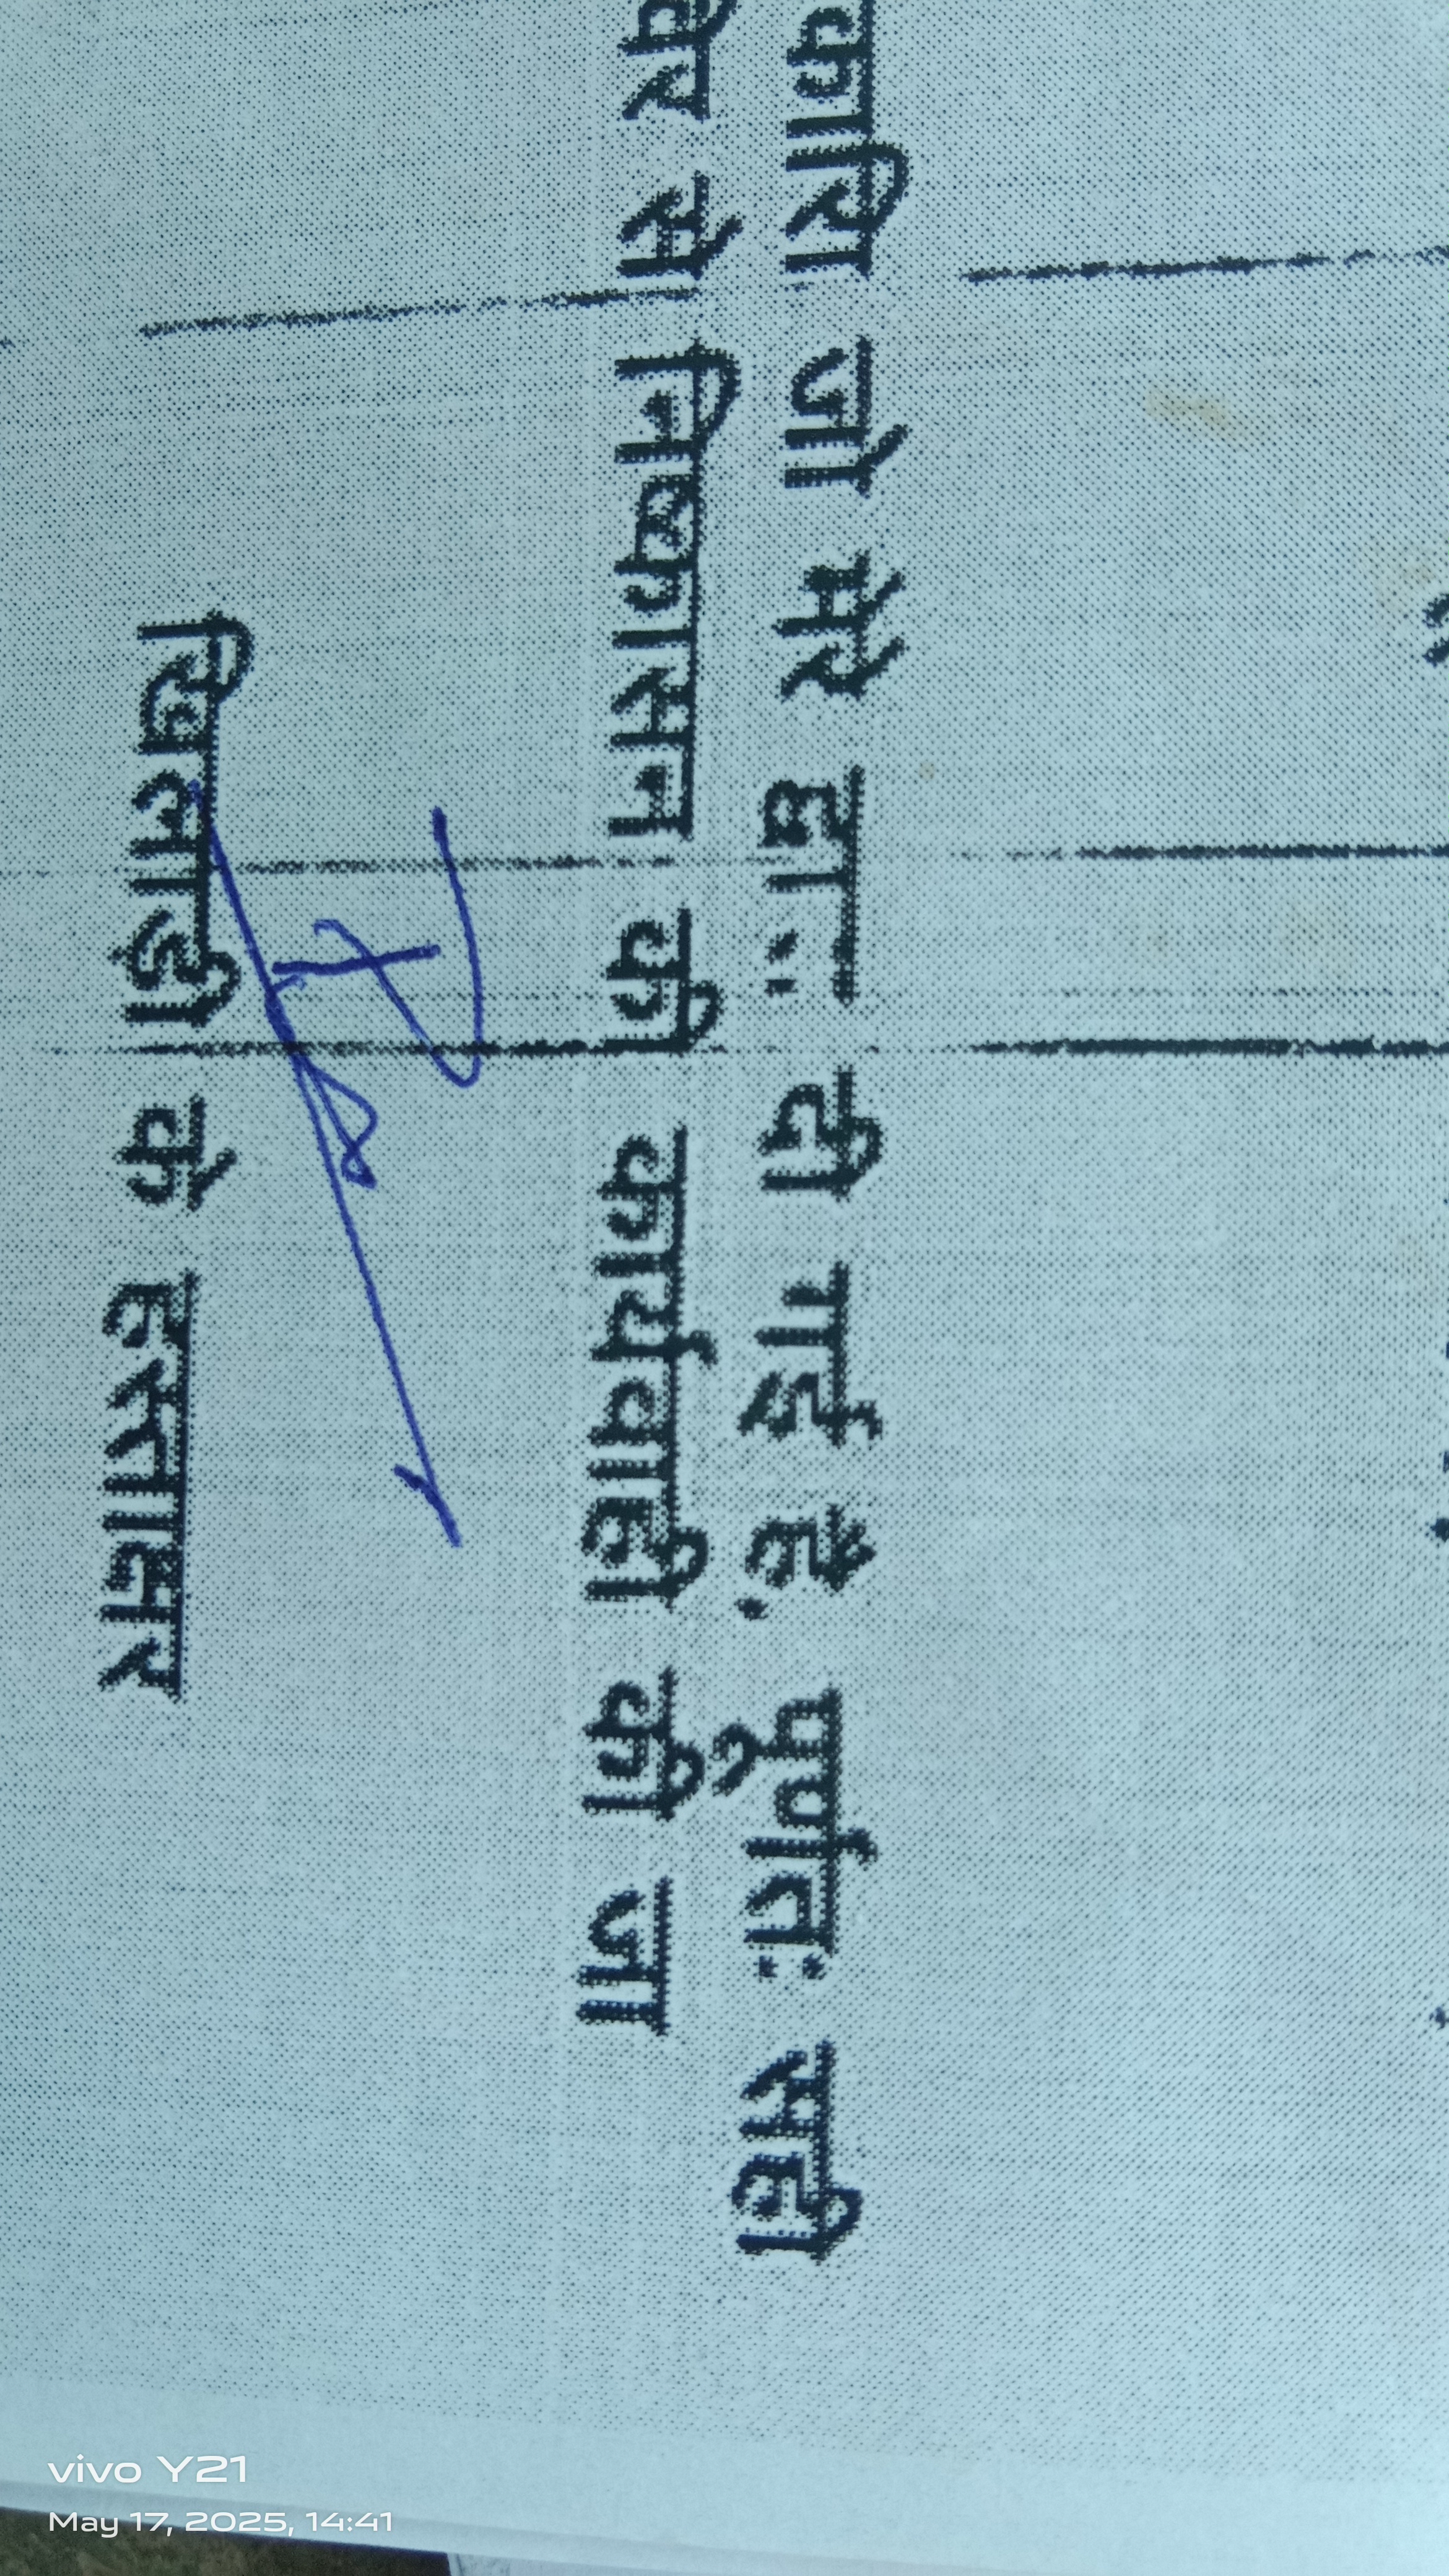 कारि जो मेरे द्वाः दी गई है, पूर्णतः सही
विर से निष्कासन की कार्यवाही की जा
खिलाड़ी के हस्ताक्षर
vivo Y21
May 17, 2025, 14:41